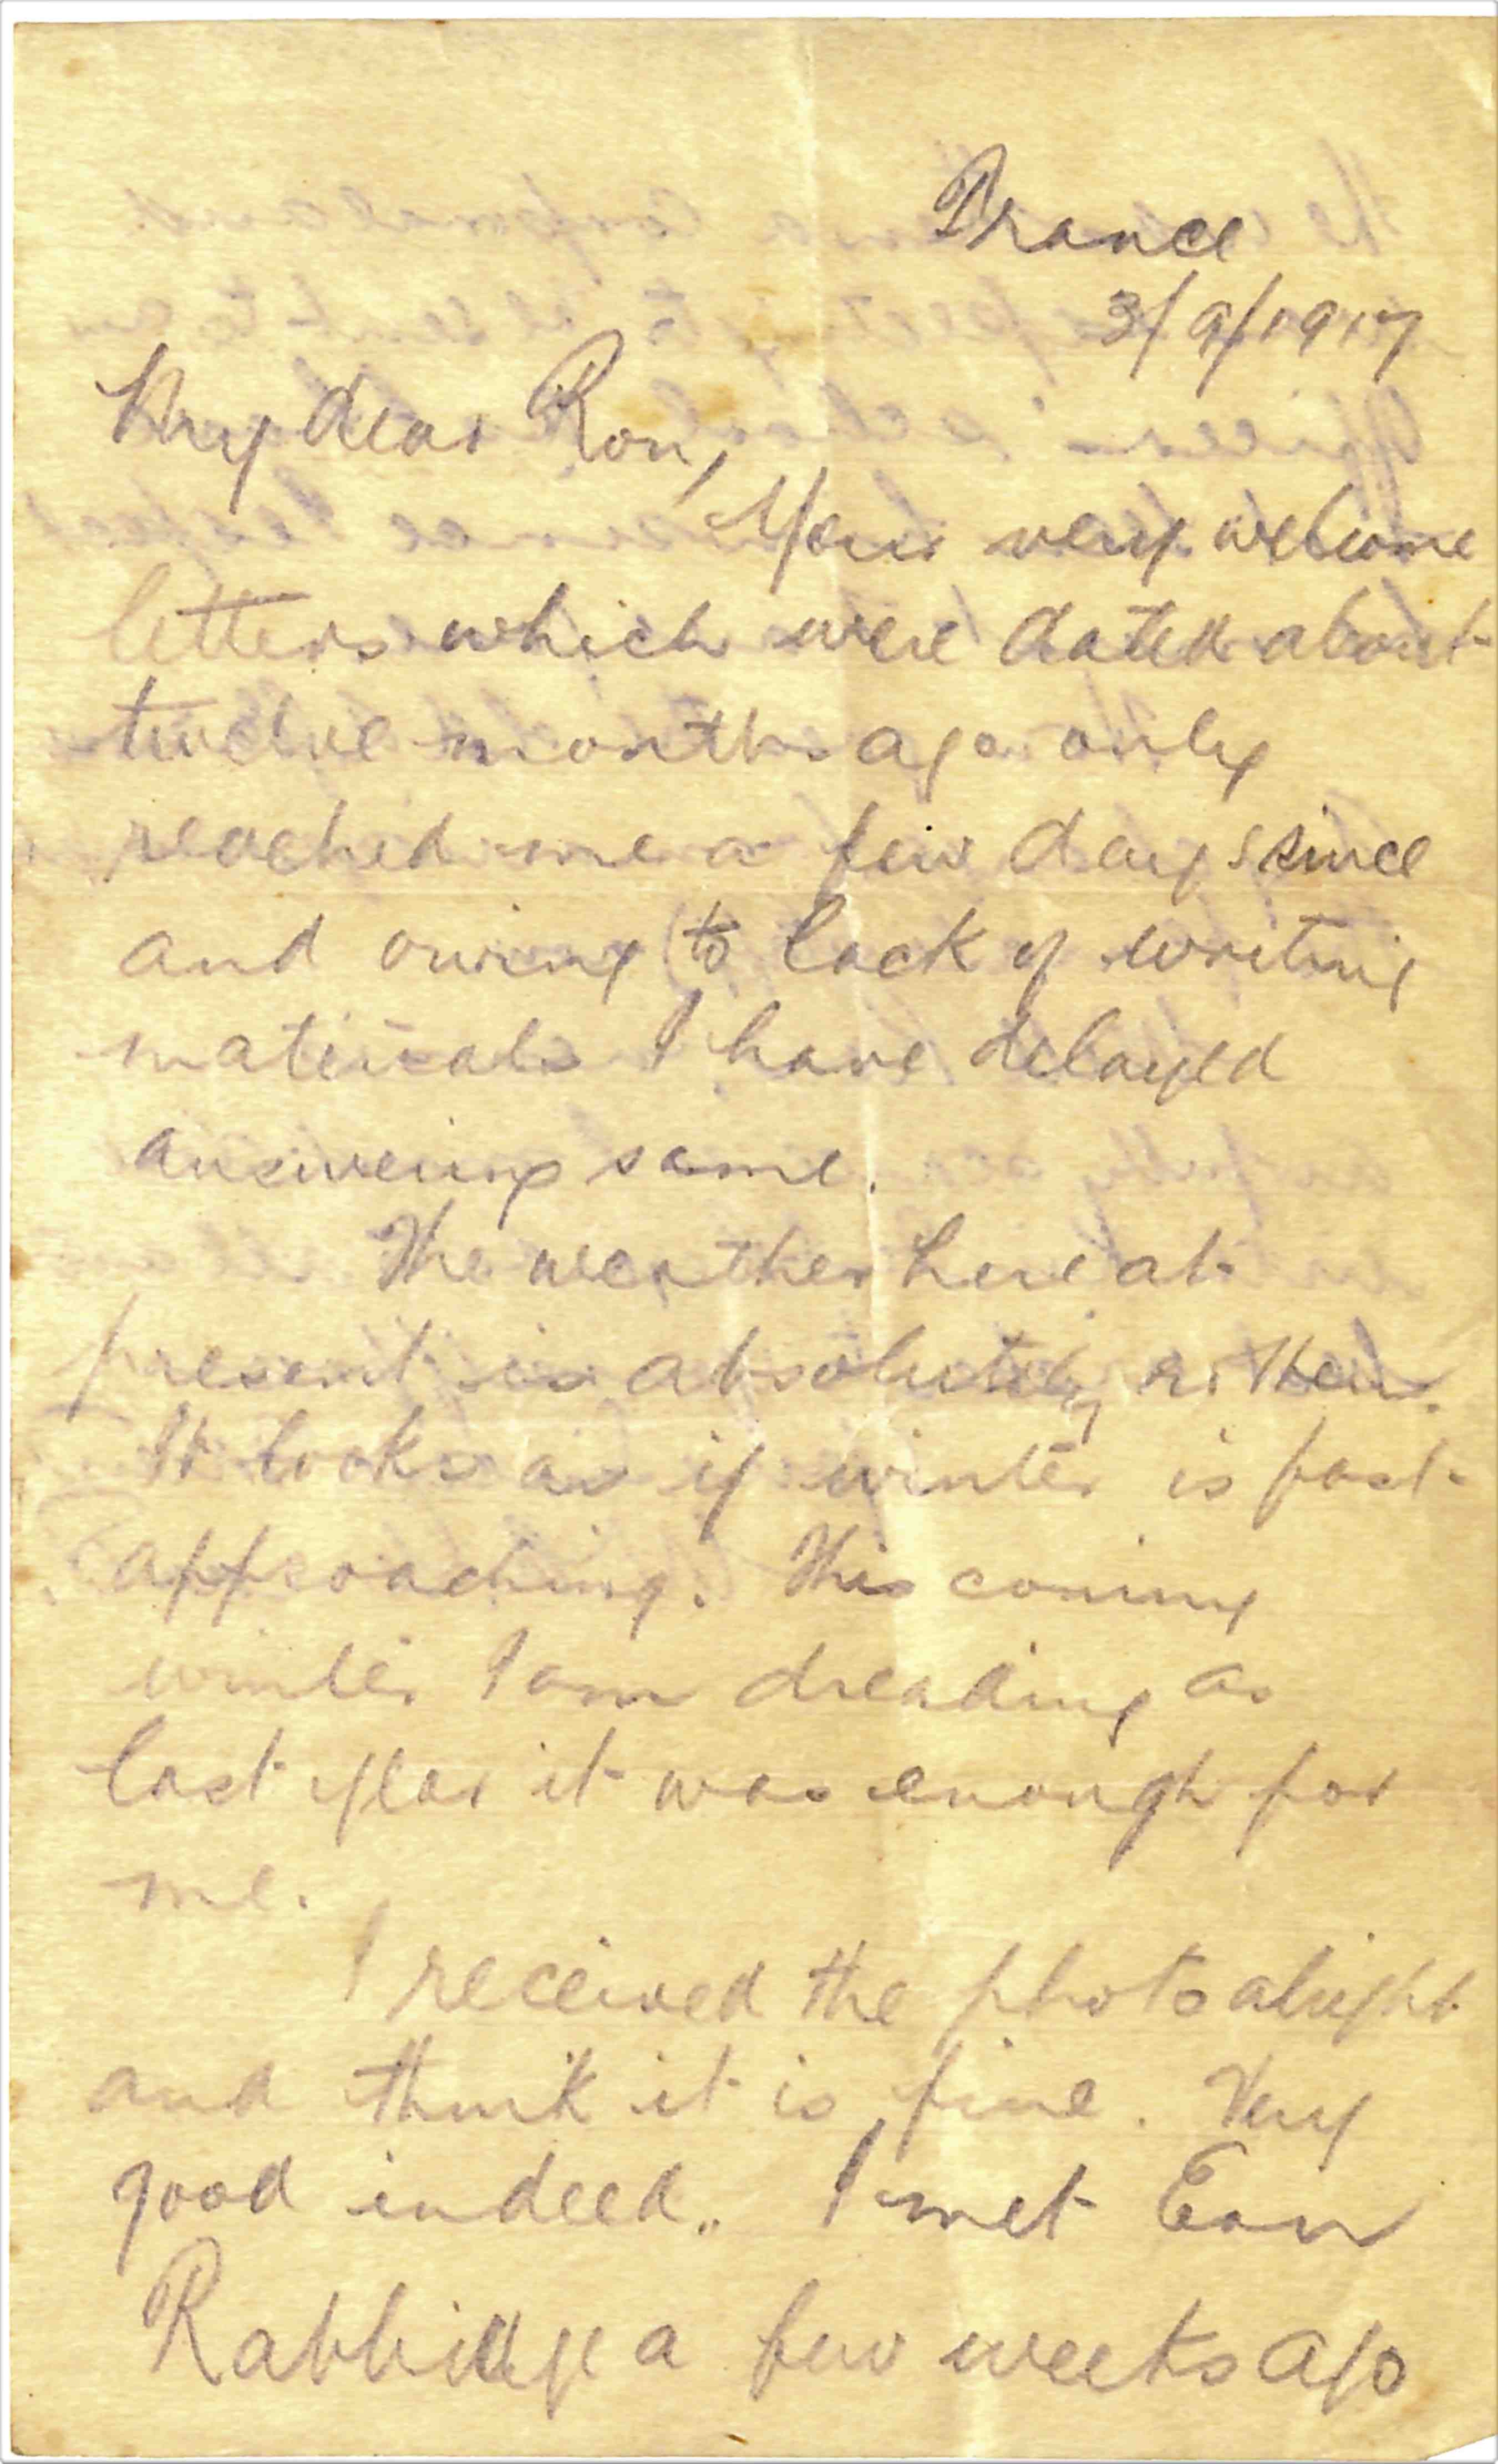 France
3/9/1917
My dear Ron,
Your very welcome
letters which were dated about
twelve months ago only
reached me a few days since
and owing to lack of writing
materials I have delayed
answering same.
The weather here at
present is absolutely rotten.
It looks as if winter is fast
approaching. This coming
winter I am dreading as
last year it was enough for
me.
I received the photo alright
and think it is fine. Very
good indeed. I met Ean
Rabbidge a few weeks ago